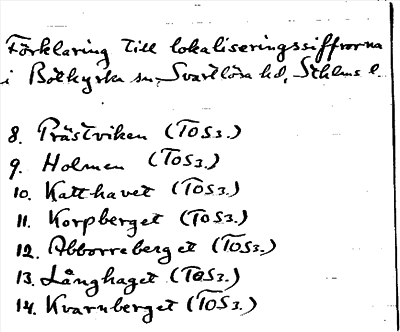 Förklaring till lokaliseringssiffrorna
i Botkyrka sn, Svartlösa hd, Sthlms l.
8. Prästviken (TOS3.)
9. Holmen (TOS3.)
10. Katthavet (TOS3.)
11. Korpberget (TOS3.)
12. Abborreberget (TOS3.)
13. Långhaget (TOS3.)
14. Kvarnberget (TOS3.)